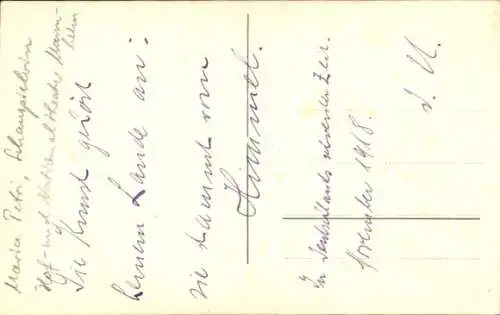 Maria Petri, Schauspielerin
Hof- und Nationaltheater Mann-
heim
Die Kunst gehört
keinem Lande an:
sie stammt vom
Himmel.
In Deutschlands schwerster Zeit.
November 1918.